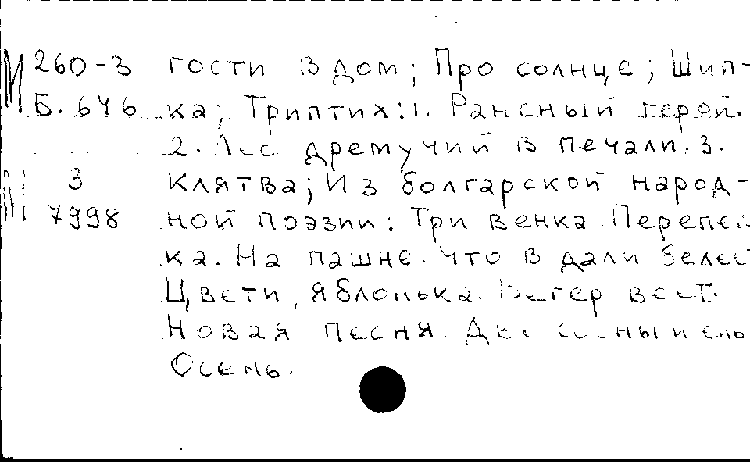 М 260-3 гости в дом; Про солнце; Шип-
Б.646 ка; Триптих: 1. Раненый герой.
2. Лес дремучий в печали. 3.
М 3 Клятва; Из болгарской народ-
7998 ной поэзии: Три венка. Перепел
ка. На пашне. Что в дали белеет
Цвети, яблонька. Ветер веет.
Новая песня. Две сосны и ель
Осень.